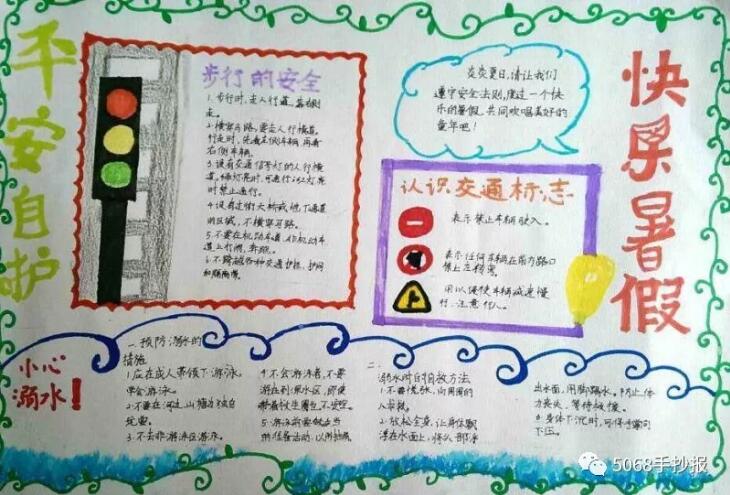 平安自护
步行的安全
1.步行时,走人行道,靠右侧
走。
2.横穿马路,要走人行横道。
行走时,先看左侧车辆,再看
右侧车辆。
3.没有交通信号灯的人行横
道。绿灯亮时,可通行;红灯亮
时禁止通行。
4.没有过街天桥或地下通道
的区域,不横穿马路。
5.不要在机动车道、非机动车
道上打闹、奔跑。
6.不跨越各种交通护栏、护网
和隔离带。
炎炎夏日,请让我们
遵守安全法则,度过一个快
乐的暑假,共同欢唱美好的
童年吧!
认识交通标志
表示禁止车辆驶入。
表示任何车辆在前方路口
禁止左转弯。
用以促使车辆减速慢
行,注意行人。
快乐暑假
小心
溺水!
一、预防溺水的
措施
1.应在成人带领下游泳,
学会游泳。
2.不要在河边、山塘边独自
玩耍。
3.不去非游泳区游泳。
4.不会游泳者,不要
游在到深水区,即使
带着救生圈也不安全。
5.游泳前要做适当
的准备活动,以防抽筋
二、
溺水时的自救方法
1.不要慌张,向周围的
人求救。
2.放松全身,让身体飘
浮在水面上,将头部浮
出水面,用脚踢水,防止体
力丧失,等待救援。
3.身体下沉时,可将手掌向
下压。
5068手抄报